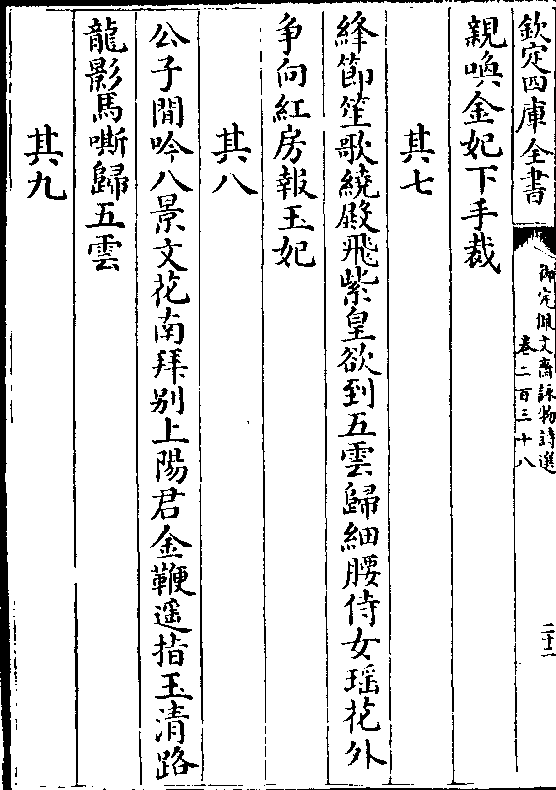 欽定四庫全書
御定佩文齋詠物詩選
卷二百三十八
二十二
親喚金妃下手裁
其七
絳節笙歌繞殿飛紫皇欲到五雲歸細腰侍女瑶花外
争向紅房報玉妃
其八
公子閒吟八景文花南拜别上陽君金鞭遥指玉清路
龍影馬嘶歸五雲
其九